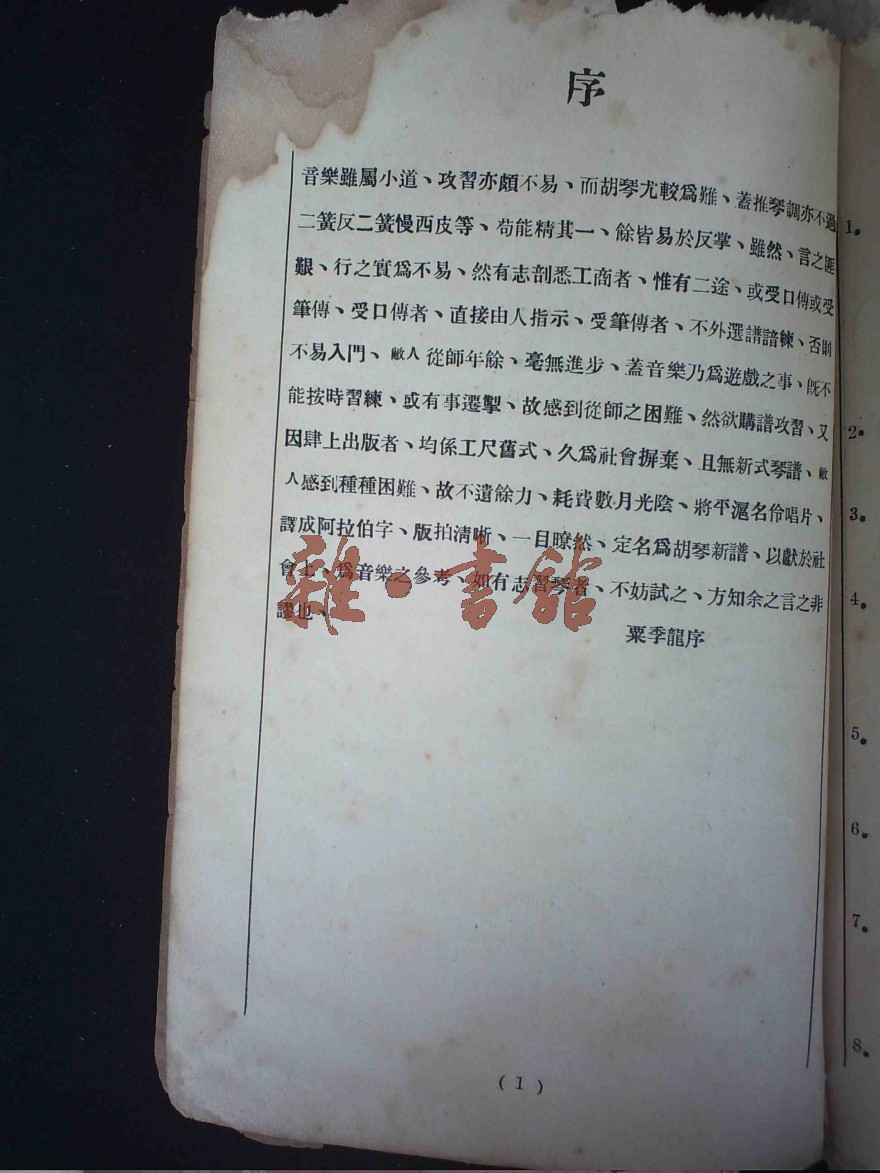 序
音樂雖屬小道、攻習亦頗不易、而胡琴尤較爲難、蓋推琴調亦不過
二簧反二簧慢西皮等、苟能精其一、餘皆易於反掌、雖然、言之匪
艱、行之實爲不易、然有志剖悉工商者、惟有二途、或受口傳或受
筆傳、受口傳者、直接由人指示、受筆傳者、不外選譜諳練、否則
不易入門、敝人從師年餘、毫無進步、蓋音樂乃爲遊戲之事、旣不
能按時習練、或有事遷掣、故感到從師之困難、然欲購譜攻習、又
因肆上出版者、均係工尺舊式、久爲社會摒棄、且無新式琴譜、敝
人感到種種困難、故不遺餘力、耗費數月光陰、將平滬名伶唱片、
譯成阿拉伯字、版拍清晰、一目暸然、定名爲胡琴新譜、以獻於社
會上、爲音樂之參考、如有志習琴者、不妨試之、方知余之言之非
謬也、
粟季龍序
雜·書館
(1)
1.
2.
3.
4.
5.
6.
7.
8.